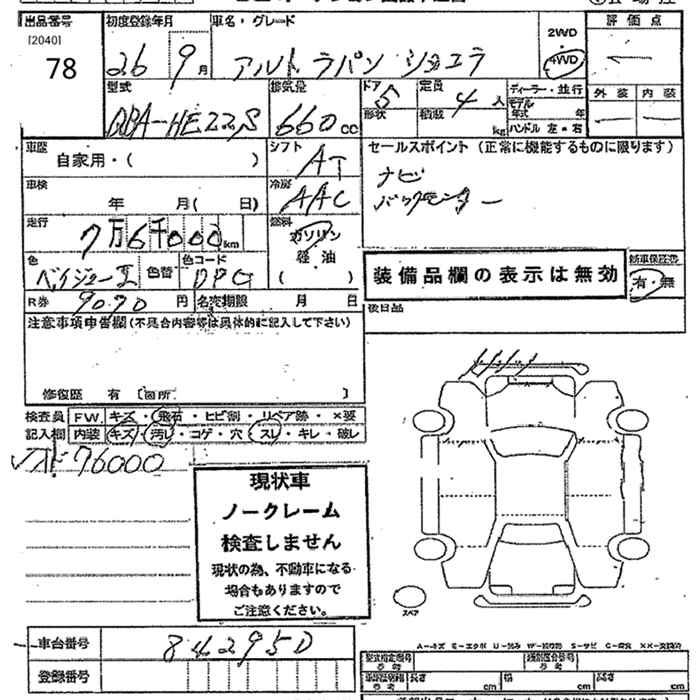 出品番号 初度登録年月 車名・グレード 評価点
[2040]
78 26 9月 アルト ラパン ショコラ 2WD 4WD
型式 排気量 ドア 定員 ディーラー・並行 外装 内装
DBA-HE22S 660cc 5 形状 積載 4人 モデル 年式 年
kg ハンドル 左・右
車歴 シフト セールスポイント (正常に機能するものに限ります)
自家用・( ) AT ナビ
車検 冷房 バックモニター
年 月 ( 日) AAC
走行 燃料
7万6千000km ガソリン
軽油
色 色替 色コード ( ) 装備品欄の表示は無効 新車保証書
ベイジュー 有・無
R券 9070円 名変期限 月 日 後日品
注意事項申告欄(不具合内容等は具体的に記入して下さい)
修復歴 有 [箇所 ]
検査員 FW. キズ・飛石・ヒビ割・リペア跡・×要
記入欄 内装 キズ・汚し・コゲ・穴・スレ・キレ・破レ
76000
現状車
ノークレーム
検査しません
現状の為、不動車になる
場合もありますので
ご注意ください。
スペア
車台番号 842950
登録番号
長さ cm 幅 cm 高さ cm